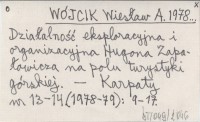 WÓJCIK Wiesław A. 1978...
Działalność eksploracyjna i
organizacyjna Hugona Zapa-
łowicza na polu turystyki
górskiej. — Karpaty
nr 13-14 (1978-79): 9-17